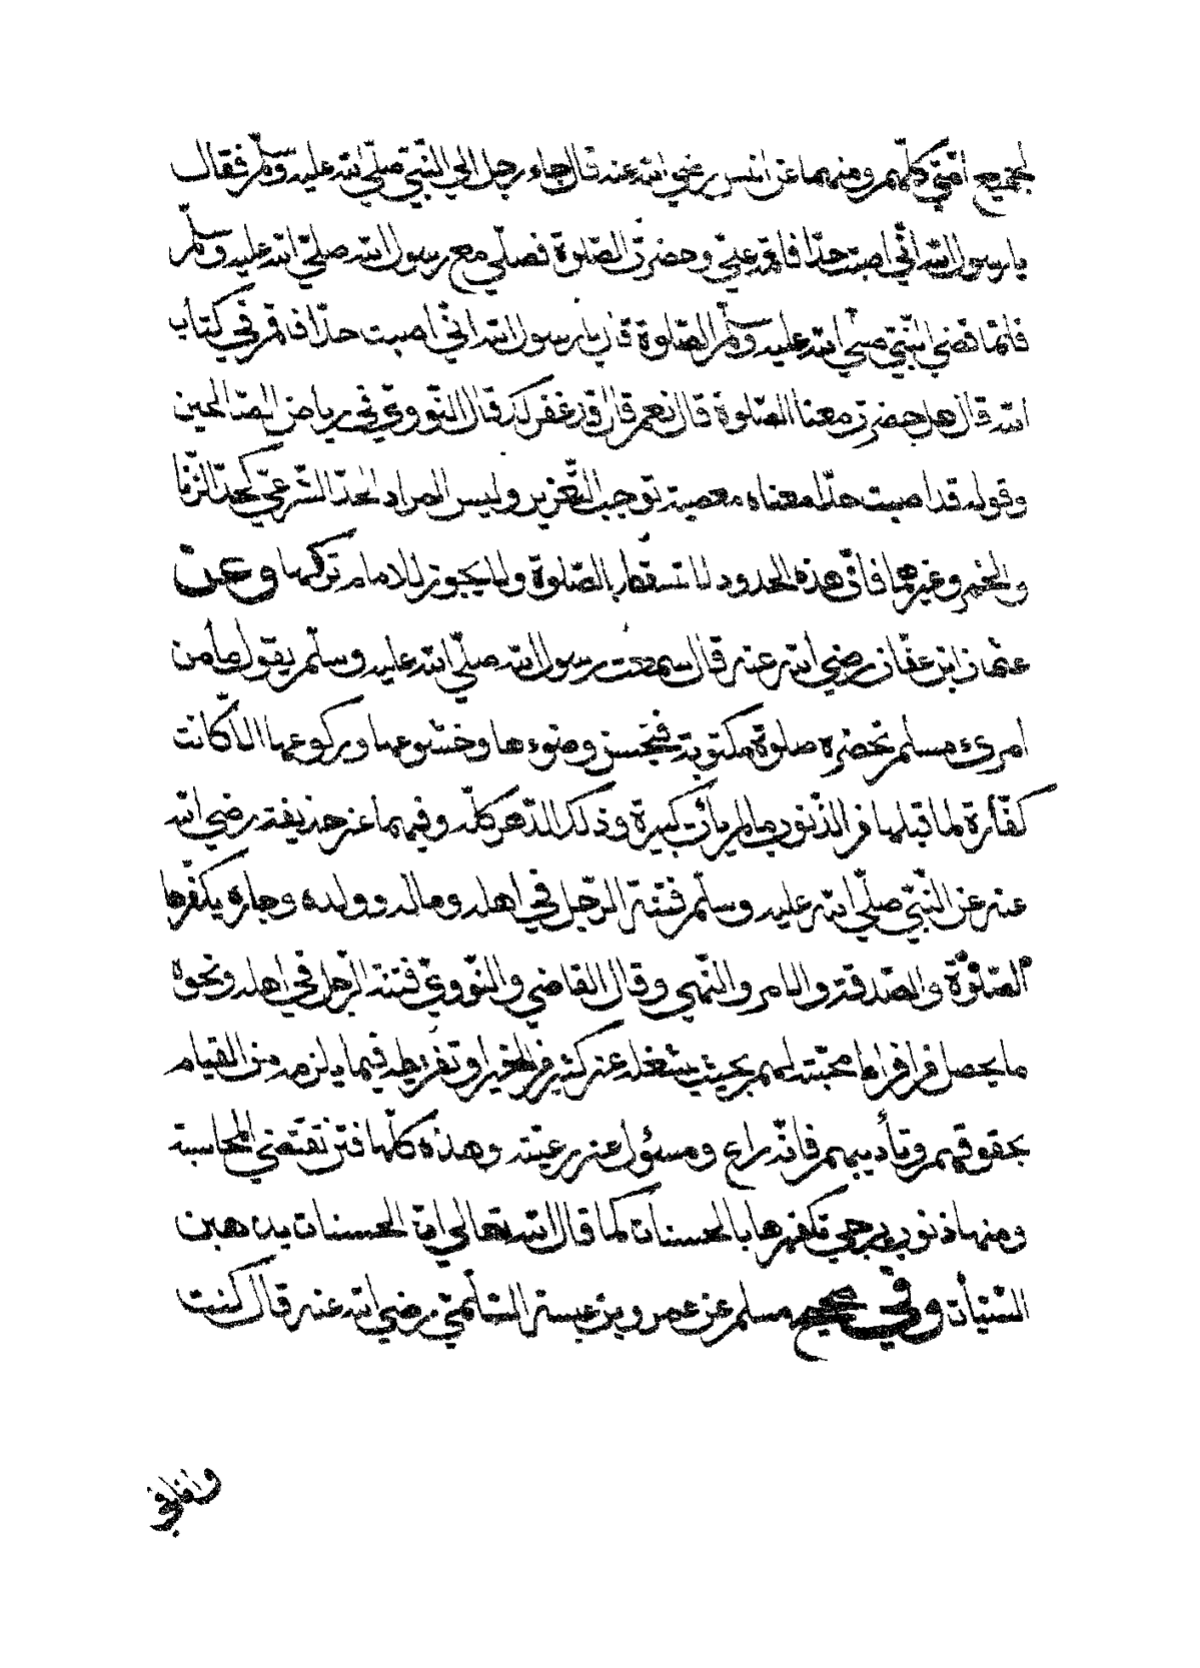 لجميع امّتي كلّهم ومنهما عن انس رضي الله عنه قال جاء رجل الي النّبيّ صلّي الله عليه وسلّم فقال
يا رسول الله انّي اصبت حدّا فاقمه عليّ وحضرت الصّلوة فصلّي مع رسول الله صلّي الله عليه وسلّم
فلمّا قضي النّبيّ صلّي الله عليه وسلّم الصّلوة قال يا رسول الله انّي اصبت حدّا فاقم فيّ كتاب
الله قال هل حضرت معنا الصّلوة قال نعم قال قد غفر لك قال النّوويّ في رياض الصّالحين
وقوله قد اصبت حدّا معناه معصية توجب التّعزير وليس المراد الحدّ الشّرعيّ كحدّ الزّنا
والخمر وغيرهما فانّ هذه الحدود لا تسقط بالصّلوة ولا يجوز للامام تركها وعن
عثمان ابن عفّان رضي الله عنه قال سمعت رسول الله صلّي الله عليه وسلّم يقول ما من
امرئ مسلم تحضره صلوة مكتوبة فيحسن وضوءها وخشوعها وركوعها الّا كانت
كفّارة لما قبلها من الذّنوب ما لم يأت كبيرة وذلك الدّهر كلّه وفيهما عن حذيفة رضي الله
عنه عن النّبيّ صلّي الله عليه وسلّم فتنة الرّجل في اهله وماله وولده وجاره يكفّرها
الصّلوة والصّدقة والامر والنّهي وقال القاضي والنّوويّ فتنة الرّجل في اهله ونحوه
ما يحصل من افراط محبّته لهم بحيث يشغله عن كثير من الخير او تفريطه فيما يلزمه من القيام
بحقوقهم وتأديبهم فانّه راع ومسؤل عن رعيّته وهذه كلّها فتن تقتضي المحاسبة
ومنها ذنوب يرجي تكفيرها بالحسنات كما قال الله تعالي انّ الحسنات يذهبن
السّيّأت وفي صحيح مسلم عن عمرو بن عبسة السّلميّ رضي الله عنه قال كنت
وانا في